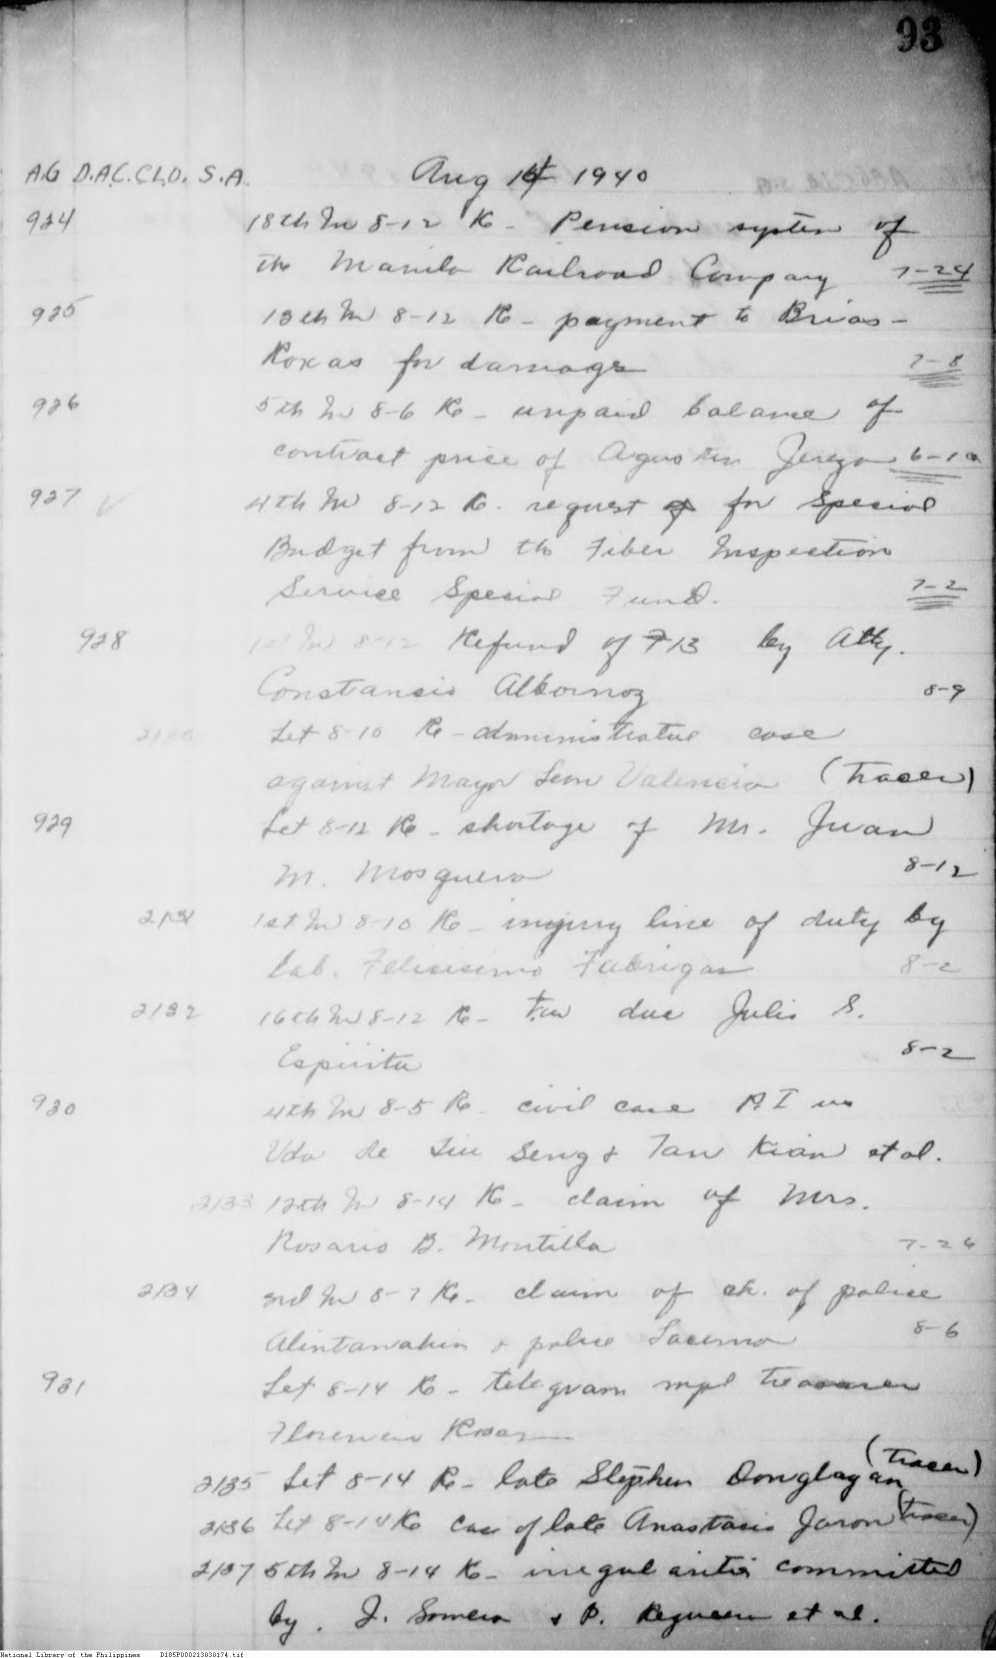 93
A.G D.A.C. C.L.D. S.A. Aug 14 1940
924 18th In 8-12 Re - Pension system of
the Manila Railroad Company 7-24
925 13th In 8-12 Re - payment to Brias-
Roxas for damage 7-8
926 5th In 8-6 Re - unpaid balance of
contract price of Agustin Jerezo 6-10
927 4th In 8-12 Re. request for Special
Budget from the Fiber Inspection
Service Special Fund. 7-2
928 1st In 8-12 Refund of ₱13 by Atty.
Constancio Albornoz 8-9
2130 Let 8-10 Re - administrative case
against Mayor Leon Valencia (tracer)
929 Let 8-12 Re - shortage of Mr. Juan
M. Mosquera 8-12
2131 1st In 8-10 Re - injury line of duty by
lab. Felicisimo Fabrigas 8-2
2132 16th In 8-12 Re - tax due Julio S.
Espiritu 8-2
930 4th In 8-5 Re - civil case PI vs
Vda de Liu Seng & Tan Kian et al.
2133 12th In 8-14 Re - claim of Mrs.
Rosario B. Montilla 7-26
2134 3rd In 8-7 Re - claim of ch. of police
& police 8-6
931 Let 8-14 Re - telegram mpl treasurer
Rosar
(tracer)
2135 Let 8-14 Re - late Stephen Donglayan
2136 Let 8-14 Re case of late Anastacio Jaron (tracer)
2137 5th In 8-14 Re - irregularities committed
by J. Somera & P. Regucera et al.
National Library of the Philippines D185P000213030174.tif